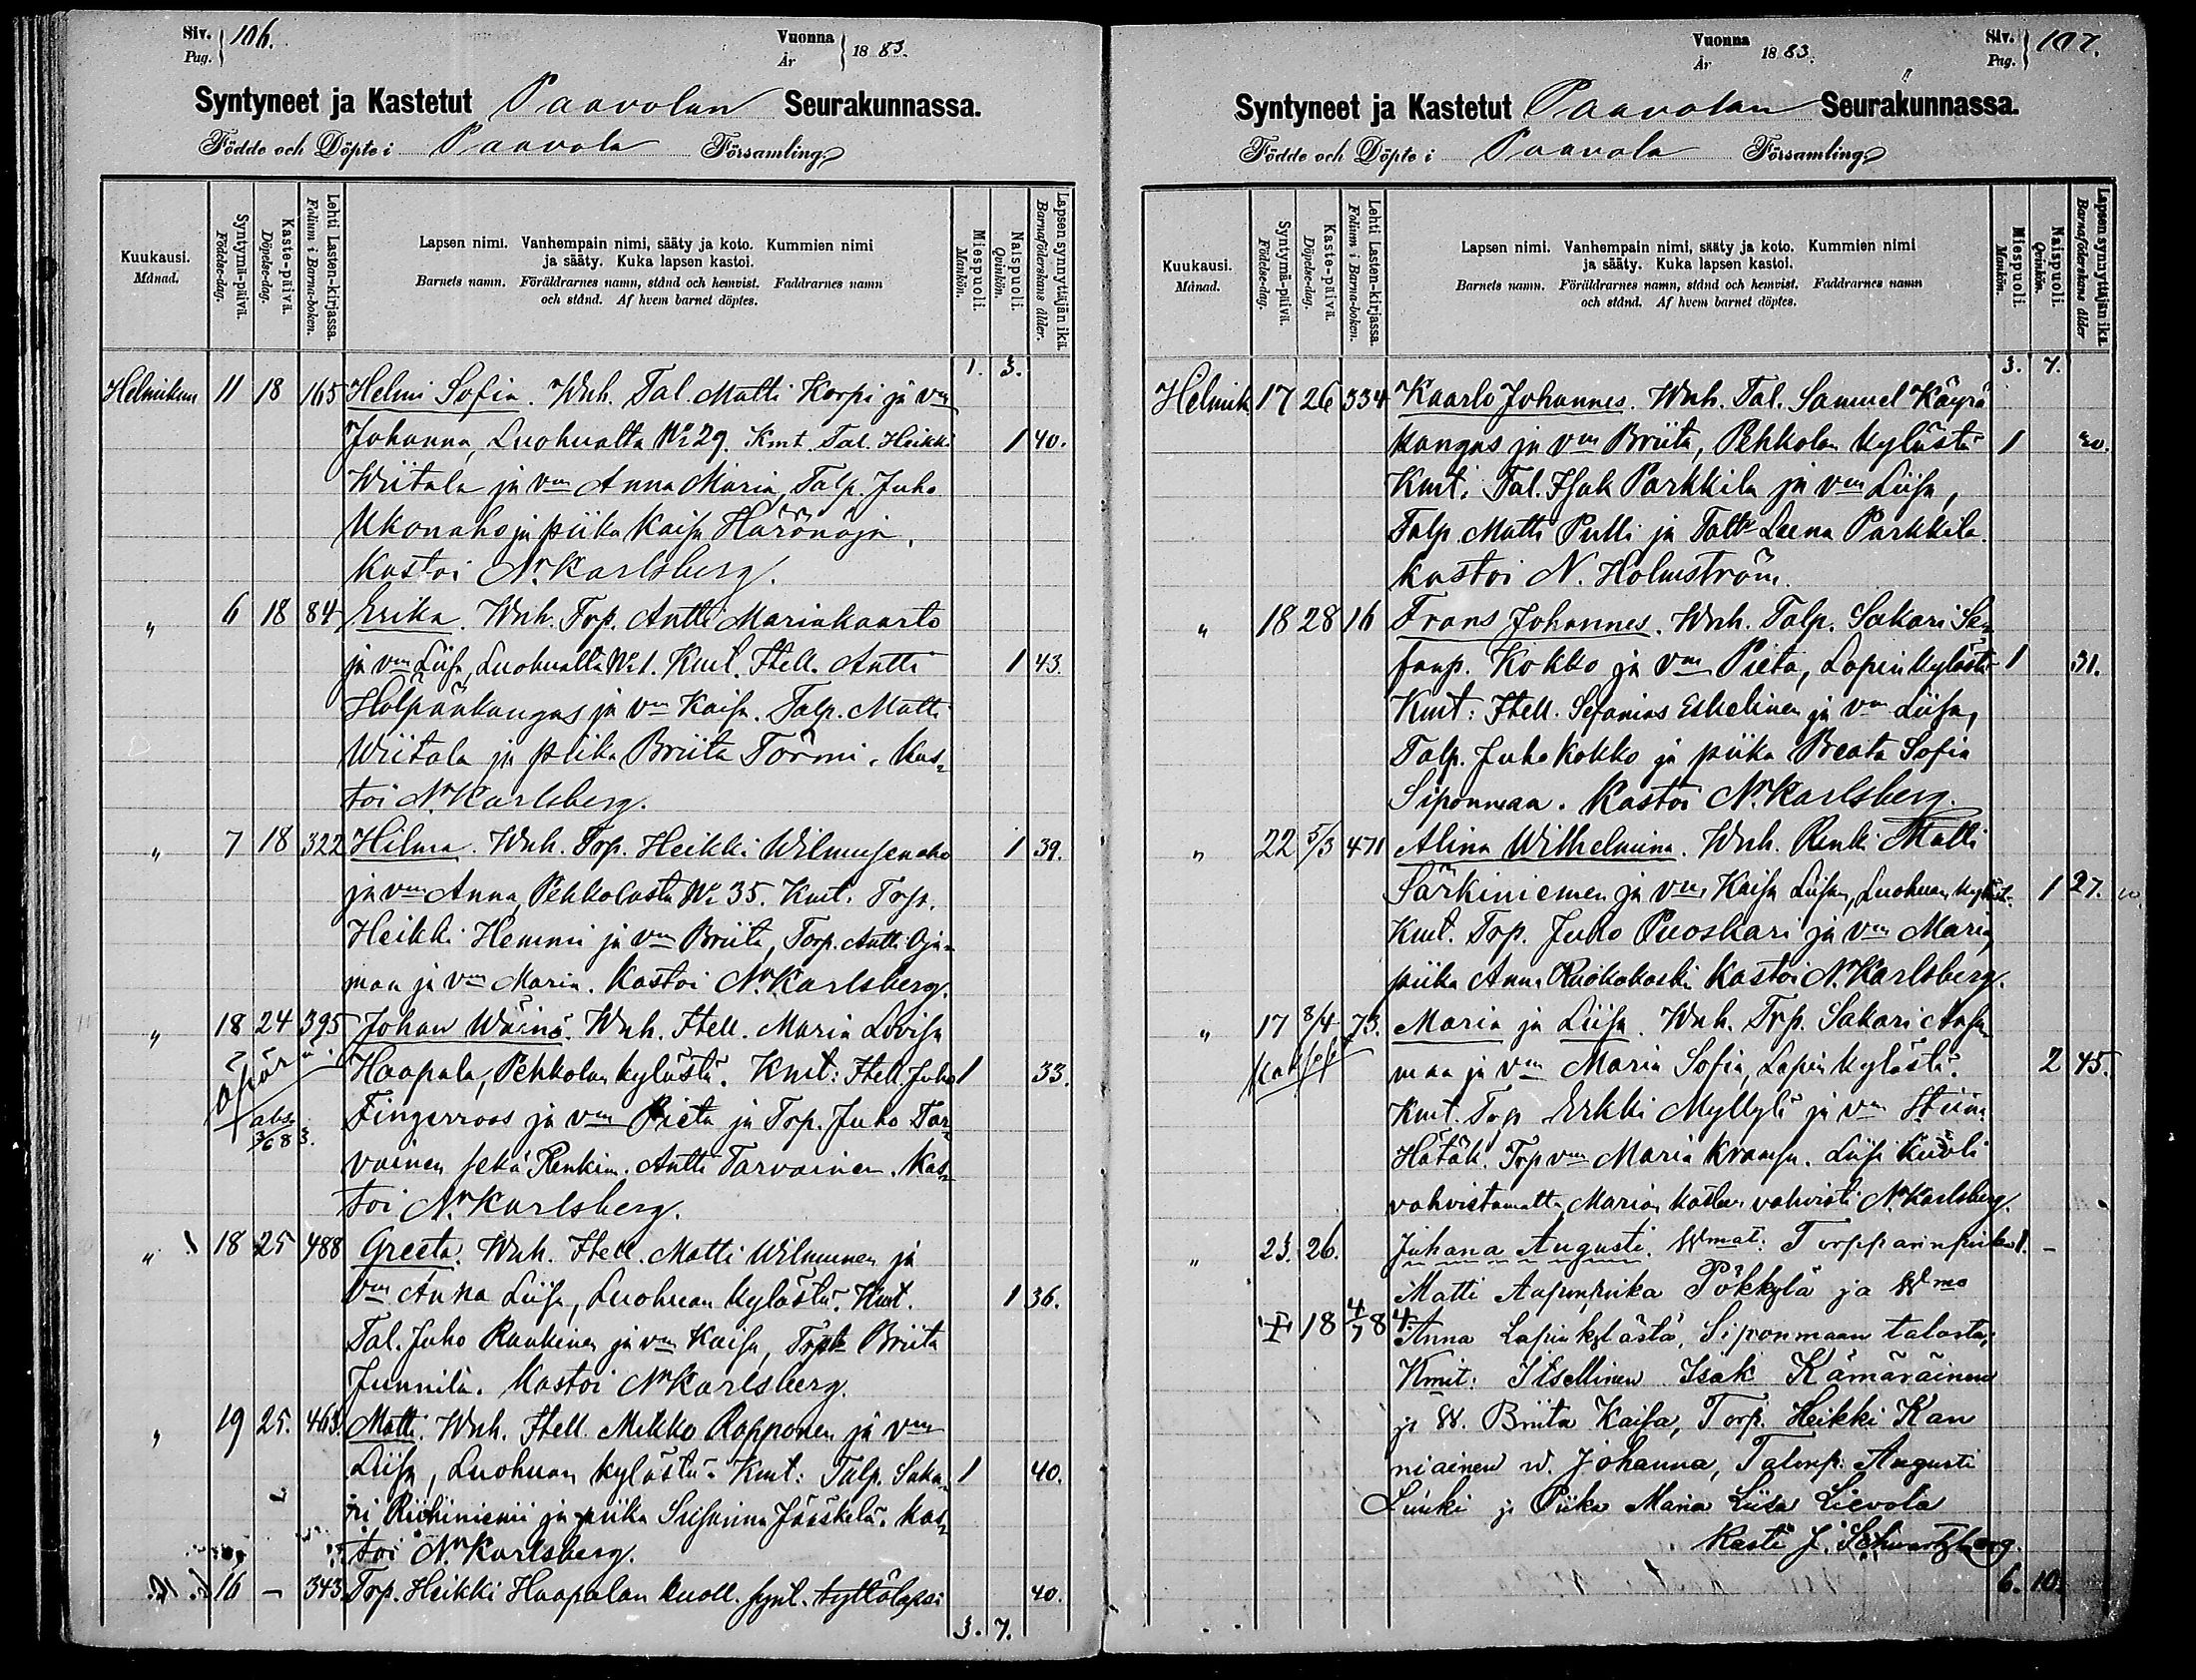 Siv. Pag. 106.
Vuonna År 1883.
Syntyneet ja Kastetut Paavolan Seurakunnassa.
Födde och Döpte i Paavola Församling
Kuukausi. Månad.
Syntymä-päivä. Födelse-dag.
Kaste-päivä. Döpelse-dag.
Lehti Lasten-kirjassa. Folium i Barna-boken.
Lapsen nimi. Vanhempain nimi, sääty ja koto. Kummien nimi
ja sääty. Kuka lapsen kastoi.
Barnets namn. Föräldrarnes namn, stånd och hemvist. Faddrarnes namn
och stånd. Af hvem barnet döptes.
Miespuoli. Mankön.
Naispuoli. Qvinkön.
Lapsen synnyttäjän ikä. Barnaföderskans ålder.
1. 3.
Helmikuu 11 18 165 Helmi Sofia. Wnh. Tal. Matti Korpi ja vm
Johanna, Luohualta No 29. Kmt. Tal. Heikki 1 40.
Wiitala ja vm Anna Maria, Talp. Juho
Ukonaho ja piika Kaisa Härönoja.
Kastoi Nr Karlsberg.
" 6 18 84 Erika. Wnh. Trp. Antti Mariakaarto
ja vm Liisa, Luohualta No 1. Kmt. Itell. Antti 1 43.
Holpänkangas ja vm Kaisa. Talp. Matti
Wiitala ja piika Briita Törmi. Kas-
toi Nr Karlsberg.
" 7 18 322 Hilma. Wnh. Trp. Heikki Wilmusenaho 1 39.
ja vm Anna, Pehkolasta No 35. Kmt. Torp.
Heikki Hemmi ja vm Briita, Torp. Antti Oja-
maa ja vm Maria. Kastoi Nr Karlsberg.
" 18 24 395 Johan Wäinö. Wnh. Itell. Maria Lovisa
äpärä. Haapala, Pehkolan kylästä. Kmt: Itell. Juho 1 33.
abs. Fingerroos ja vm Pieta ja Trp. Juho Tar-
3/6 83. vainen sekä Renkim. Antti Tarvainen. Kas-
toi Nr Karlsberg.
" 18 25 488 Greeta. Wnh. Itell. Matti Wilmunen ja
vm Anna Liisa, Luohuan kylästä. Kmt. 1 36.
Tal. Juho Rankinen ja vm Kaisa, Briita
Junnila. Kastoi Nr Karlsberg.
" 19 25. 463. Matti. Wnh. Itell. Mikko Ropponen ja vm
Liisa, Luohuan kylästä. Kmt: Talp. Saka- 1 40.
ri Riihiniemi ja piika Susanna Jääskelä. Kas-
toi Nr Karlsberg.
16 – 343. Torp. Heikki Haapalan kuoll. synt. tyttölapsi 40.
3. 7.
Vuonna År 1883.
Siv. Pag. 107.
Syntyneet ja Kastetut Paavolan Seurakunnassa.
Födde och Döpte i Paavola Församling
Kuukausi. Månad.
Syntymä-päivä. Födelse-dag.
Kaste-päivä. Döpelse-dag.
Lehti Lasten-kirjassa. Folium i Barna-boken.
Lapsen nimi. Vanhempain nimi, sääty ja koto. Kummien nimi
ja sääty. Kuka lapsen kastoi.
Barnets namn. Föräldrarnes namn, stånd och hemvist. Faddrarnes namn
och stånd. Af hvem barnet döptes.
Miespuoli. Mankön.
Naispuoli. Qvinkön.
Lapsen synnyttäjän ikä. Barnaföderskans ålder
3. 7.
Helmik. 17 26 334 Kaarlo Johannes. Wnh. Tal. Samuel Käyrä
kangas ja vm Briita, Pehkolan kylästä 1
Kmt. Tal. Isak Parkkila ja vm Liisa,
Talp. Matti Pulli ja Leena Parkkila.
kastoi N. Holmström.
" 18 28 16 Frans Johannes. Wnh. Talp. Sakari Se-
Kokko ja vm Pieta, Lapin kylästä 1 31.
Kmt: Itell. Sefanias Eskelinen ja vm Liisa,
Talp. Juho Kokko ja piika Beata Sofia
Siponmaa. Kastoi Nr Karlsberg.
" 22 5/3 471 Alina Wilhelmina. Wnh. Renki Matti
Särkiniemen ja vm Kaisa Liisan, Luohuan kyläst. 1 27.
Kmt. Trp. Juho Puoskari ja vm Maria,
piika Anna Ruokokoski. Kastoi Nr Karlsberg.
" 17 8/4 73. Maria ja Liisa. Wnh. Trp. Sakari Ansa
kaksos. maa ja vm Maria Sofia, Lapin kylästä. 2 45.
Kmt. Trp Erkki Myllylä ja vm Stiina
Hätäk. Trp vm Maria Kranka. Liisa kuoli
vahvistamatta, Marian kasteen vahvisti Nr Karlsberg.
" 23. 26. Juhana Augusti. Wmat: Torpparinpoika 1. –
Matti Aaponpoika Pökkylä ja Wmo
18 4/7 84 Anna Lapinkylästä, Siponmaan talosta;
Kmit: Itsellinen Isak Kämäräinen
ja W. Briita Kaisa, Torp. Heikki Kan
niainen w. Johanna, Talonp. Augusti
Luuki ja Piika Maria Liisa Lievola
Kasti J. Schwartzberg.
6. 10.